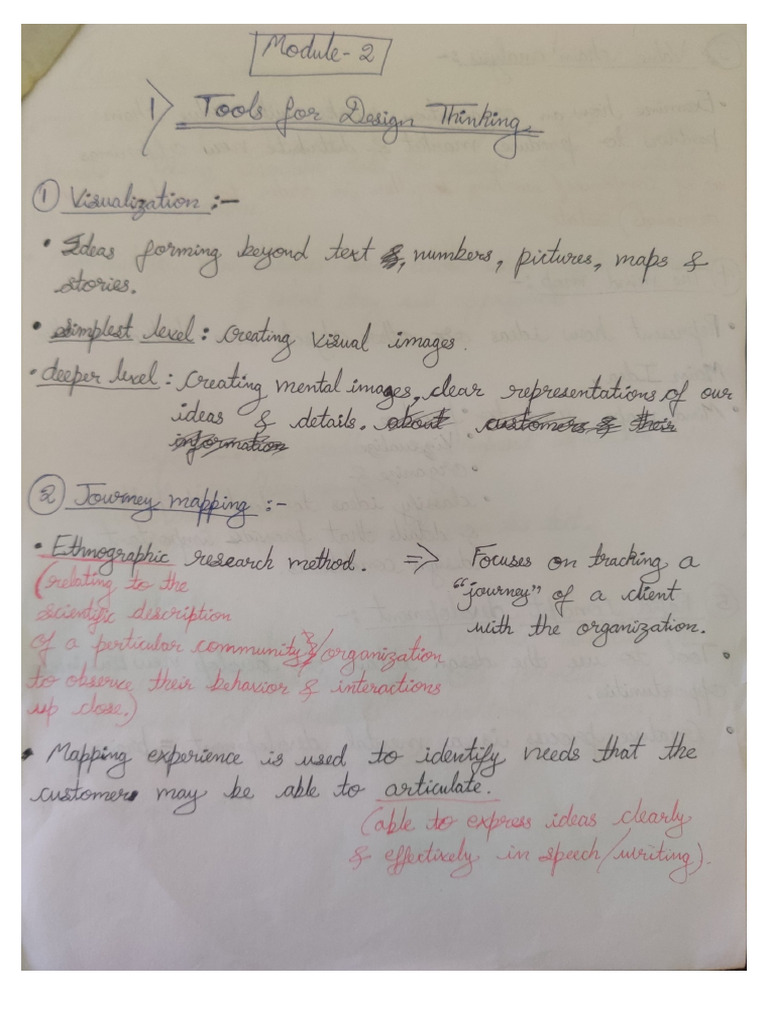 Module-2
1) Tools for Design Thinking.
① Visualization :-
• Ideas forming beyond text, numbers, pictures, maps &
stories.
• simplest level : creating visual images.
• deeper level : creating mental images, clear representations of our
ideas & details. about customers & their
information
② Journey mapping :-
• Ethnographic research method. => Focuses on tracking a
"journey" of a client
with the organization.
(relating to the
scientific description
of a perticular community/organization
to observe their behavior & interactions
up close.)
• Mapping experience is used to identify needs that the
customers may be able to articulate.
(able to express ideas clearly
& effectively in speech/writing).